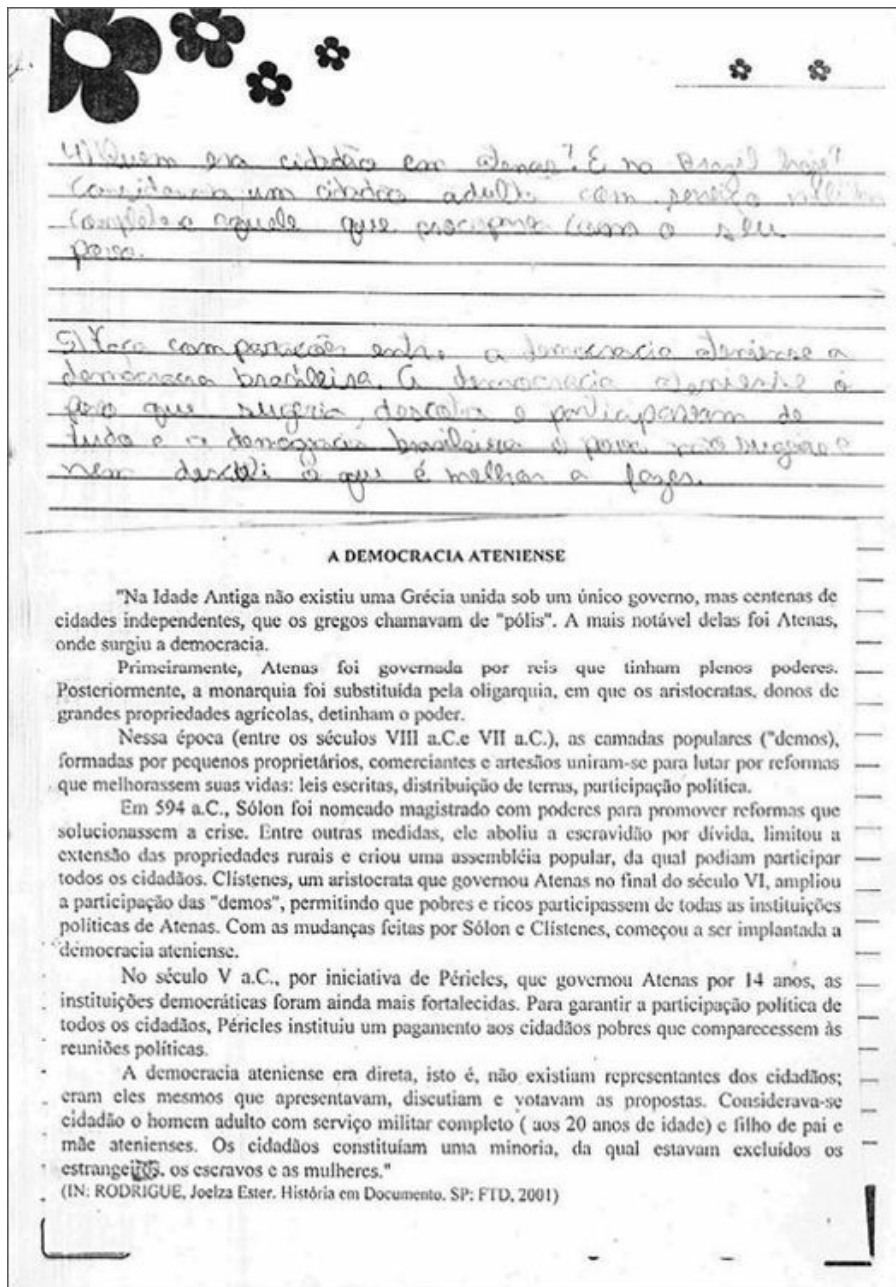 4) Quem era cidadão em atenas? E no Brazil hoje?
um cidadão adulto com serviço
completo e aquele que com o seu
povo.
5) Faça comparações entre a democracia ateniense a
democracia brasileira. A democracia ateniense o
povo que sugeria, e participavam de
tudo e a brasileira o povo não
nem o que é melhor a fazer.
A DEMOCRACIA ATENIENSE
"Na Idade Antiga não existiu uma Grécia unida sob um único governo, mas centenas de
cidades independentes, que os gregos chamavam de "pólis". A mais notável delas foi Atenas,
onde surgiu a democracia.
Primeiramente, Atenas foi governada por reis que tinham plenos poderes.
Posteriormente, a monarquia foi substituída pela oligarquia, em que os aristocratas, donos de
grandes propriedades agrícolas, detinham o poder.
Nessa época (entre os séculos VIII a.C.e VII a.C.), as camadas populares ("demos),
formadas por pequenos proprietários, comerciantes e artesãos uniram-se para lutar por reformas
que melhorassem suas vidas: leis escritas, distribuição de terras, participação política.
Em 594 a.C., Sólon foi nomeado magistrado com poderes para promover reformas que
solucionassem a crise. Entre outras medidas, ele aboliu a escravidão por dívida, limitou a
extensão das propriedades rurais e criou uma assembléia popular, da qual podiam participar
todos os cidadãos. Clístenes, um aristocrata que governou Atenas no final do século VI, ampliou
a participação das "demos", permitindo que pobres e ricos participassem de todas as instituições
políticas de Atenas. Com as mudanças feitas por Sólon e Clístenes, começou a ser implantada a
democracia ateniense.
No século V a.C., por iniciativa de Péricles, que governou Atenas por 14 anos, as
instituições democráticas foram ainda mais fortalecidas. Para garantir a participação política de
todos os cidadãos, Péricles instituiu um pagamento aos cidadãos pobres que comparecessem às
reuniões políticas.
A democracia ateniense era direta, isto é, não existiam representantes dos cidadãos;
eram eles mesmos que apresentavam, discutiam e votavam as propostas. Considerava-se
cidadão o homem adulto com serviço militar completo ( aos 20 anos de idade) e filho de pai e
mãe atenienses. Os cidadãos constituíam uma minoria, da qual estavam excluídos os
estrangeiros, os escravos e as mulheres."
(IN: RODRIGUE, Joelza Ester. História em Documento. SP: FTD, 2001)